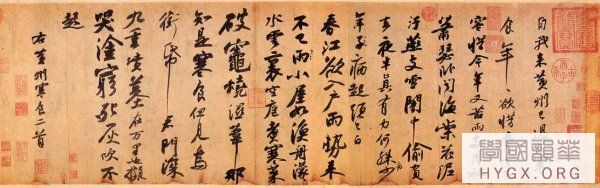 自我来黄州已過
食年〻欲惜春
容惜今年又苦雨
蕭瑟卧聞海棠花泥
汙燕支雪闇中偷負
去夜半真有力何殊少
年子病起頭已白
春江欲入戶雨勢来
不已雨小屋如漁舟濛〻
水雲裏空庖煮寒菜
破竈燒濕葦那
知是寒食但見烏
銜帋君門深
九重墳墓在万里也擬
哭塗窮死灰吹不
起
右黄州寒食二首
學國韻華
HYGX.ORG